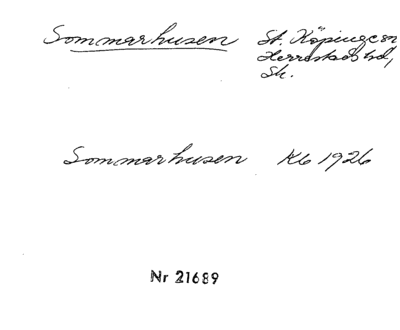 Sommarhusen St. Köpinge sn
Herrestads hd,
Sk.
Sommarhusen Kb 1926
Nr 21689